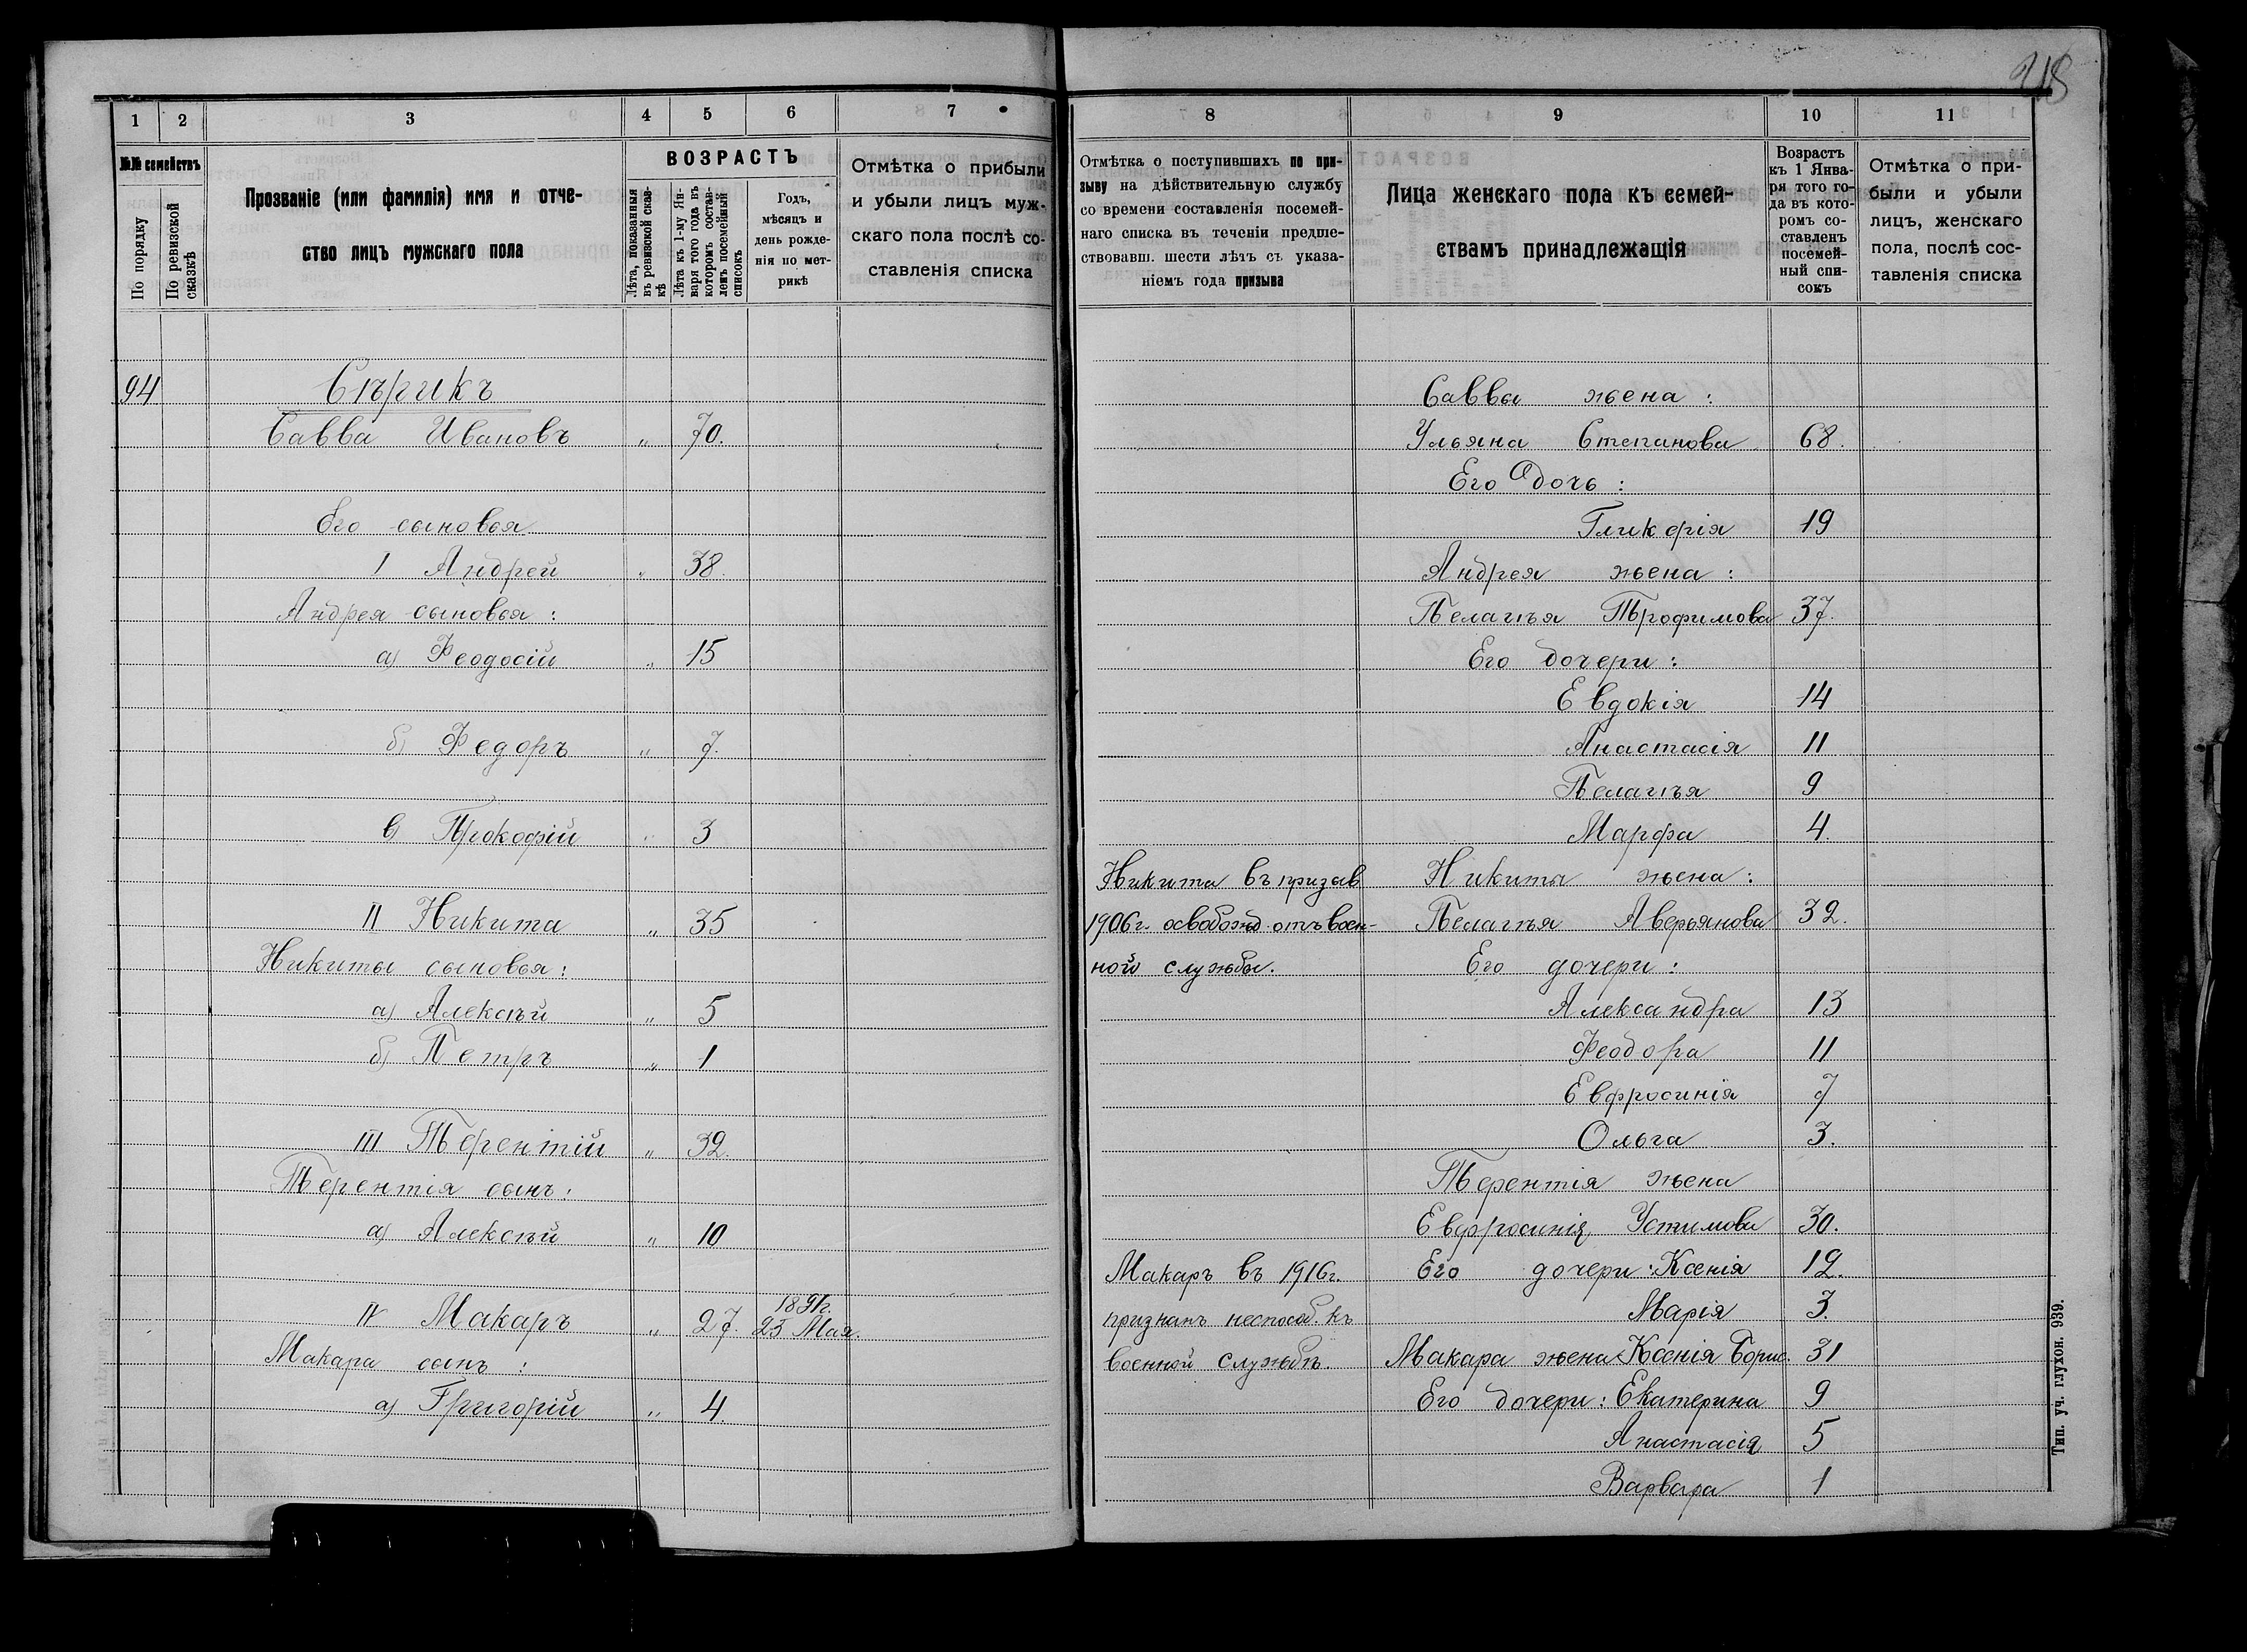 218
1 2 3 4 5 6 7
№№ семействъ
По порядку
По ревизской сказкѣ
Прозваніе (или фамилія) имя и отче-
ство лицъ мужскаго пола
ВОЗРАСТЪ
Лѣта, показанныя
въ ревизской сказ-
кѣ
Лѣта къ 1-му Ян-
варя того года въ
которомъ состав-
ленъ посемейный
списокъ
Годъ,
мѣсяцъ и
день рожде-
нія по мет-
рикѣ
Отмѣтка о прибыли
и убыли лицъ муж-
скаго пола послѣ со-
ставленія списка
94 Сѣрикъ
Савва Ивановъ „ 70.
Его сыновья
I Андрей „ 38.
Андрея сыновья:
а) Феодосій „ 15
б) Федоръ „ 7.
в) Прокофій „ 3
II Никита „ 35
Никиты сыновья:
а) Алексѣй „ 5
б) Петръ „ 1
III Терентій „ 32.
Терентія сынъ:
а) Алексѣй „ 10
IV Макаръ „ 27. 1891г.
25 Мая.
Макара сынъ:
а) Григорій „ 4.
8 9 10 11
Отмѣтка о поступившихъ по при-
зыву на дѣйствительную службу
со времени составленія посемей-
наго списка въ теченіи предше-
ствовавш. шести лѣтъ съ указа-
ніемъ года призыва
Лица женскаго пола къ семей-
ствамъ принадлежащія
Возрастъ
къ 1 Янва-
ря того го-
да въ кото-
ромъ со-
ставленъ
посемей-
ный спи-
сокъ
Отмѣтка о при-
были и убыли
лицъ, женскаго
пола, послѣ сос-
тавленія списка
Саввы жена:
Ульяна Степанова 68.
Его дочь:
Гликерія 19
Андрея жена:
Пелагѣя Трофимова 37.
Его дочери:
Евдокія 14
Анастасія 11
Пелагѣя 9
Марфа 4.
Никита въ призыв Никиты жена:
1906г. освобожд. отъ воен- Пелагѣя Аверьянова 32.
ной службы. Его дочери:
Александра 13
Феодора 11
Евфросинія 7
Ольга 3.
Терентія жена
Евфросинія Устимова 30.
Макаръ въ 1916г. Его дочери: Ксенія 12.
признанъ неспособ. къ Марія 3.
военной службѣ. Макара жена Ксенія Борис. 31
Его дочери: Екатерина 9
Анастасія 5
Варвара 1
Тип. уч. глухон. 939.